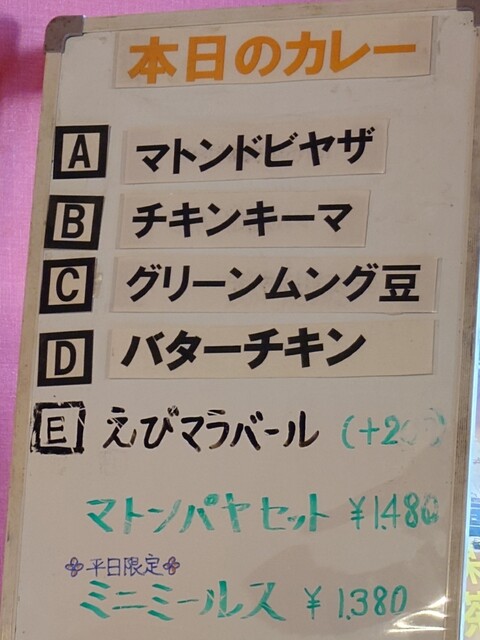 本日のカレー
A マトンドビヤザ
B チキンキーマ
C グリーンムング豆
D バターチキン
E えびマラバール
マトンパヤセット ¥1,480
平日限定
ミニミールス ¥1,380